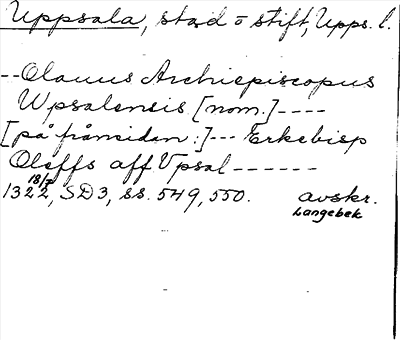 Uppsala, stad o stift, Upps. l.
--Olauus Archiepiscopus
Wpsalensis [nom.]----
[på framsidan:]--- Erkebisp
Oleffs aff Vpsal ------
18/7
1322, SD3, ss. 549, 550. avskr.
Langebek